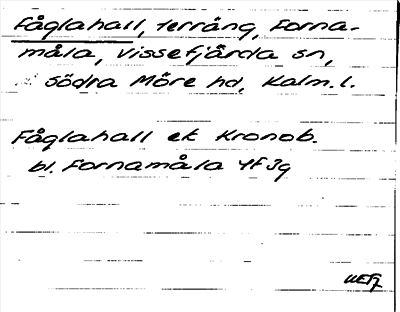 Fåglahall, terräng, Forna-
måla, Vissefjärda sn,
södra Möre hd, Kalm. l.
Fåglahall ek Kronob.
bl. Fornamåla 4F3g